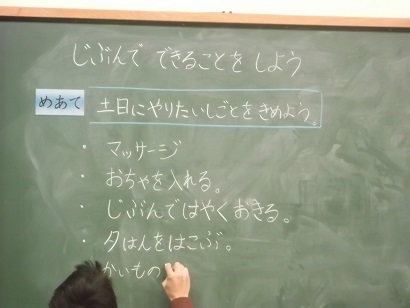 じぶんで できることを しよう
めあて 土日にやりたいしごとをきめよう。
・マッサージ
・おちゃを入れる。
・じぶんではやくおきる。
・夕はんをはこぶ。
かいもの